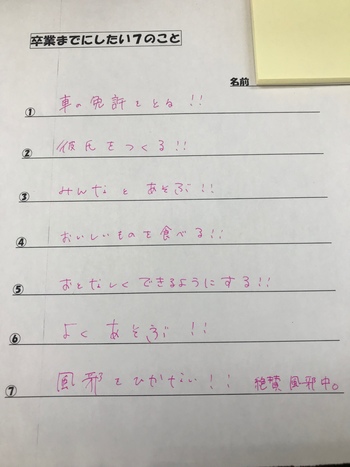 卒業までにしたい7のこと
名前
① 車の免許をとる!!
② 彼氏をつくる!!
③ みんなとあそぶ!!
④ おいしいものを食べる!!
⑤ おとなしくできるようにする!!
⑥ よくあそぶ!!
⑦ 風邪をひかない!! 絶賛風邪中。